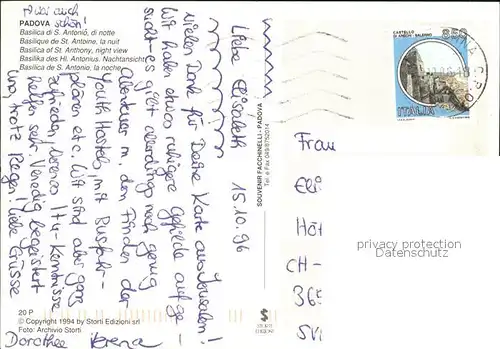 Pizzi auch
schön!
PADOVA
Basilica di S. Antonio, di notte
Basilique de St. Antoine, la nuit
Basilica of St. Anthony, night view
Basilika des Hl. Antonius. Nachtansicht
Basilica de S. Antonio, la noche
Liebe Elisabeth 15.10.96
vielen Dank für Deine Karte aus Jerusalem!
Wir haben etwas ruhigere Gefilde aufge-
sucht - es gibt allerdings noch genug
Abenteuer m. dem Finden der
Youth Hostels, mit Busfahr-
plänen etc. Wir sind aber ganz
zufrieden, Verenas It.-Kenntnisse
helfen sehr. Venedig begeistert
uns trotz Regen! Liebe Grüsse
Dorothee Verena
20 P
© Copyright 1994 by Storti Edizioni srl
Foto: Archivio Storti
SOUVENIR FACCHINELLI - PADOVA
Tel. e Fax 049/8752014
CASTELLO
DI ARECHI - SALERNO
850
ITALIA
Frau
Eli
Höf
CH -
365
privacy protection
Datenschutz